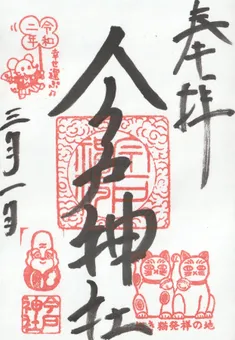 奉拝
今戸神社
三月一日
令和
二年
幸せ運ぶの
今戸
神社
招き猫発祥の地